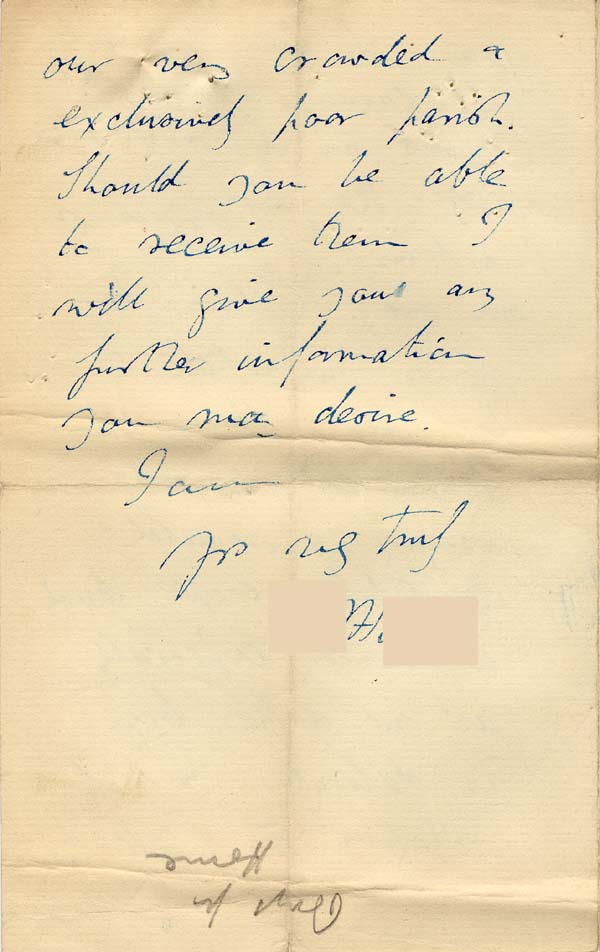 our very crowded &
exclusively poor parish.
Should you be able
to receive them I
will give you any
further information
you may desire.
I am
Yrs very truly
H.